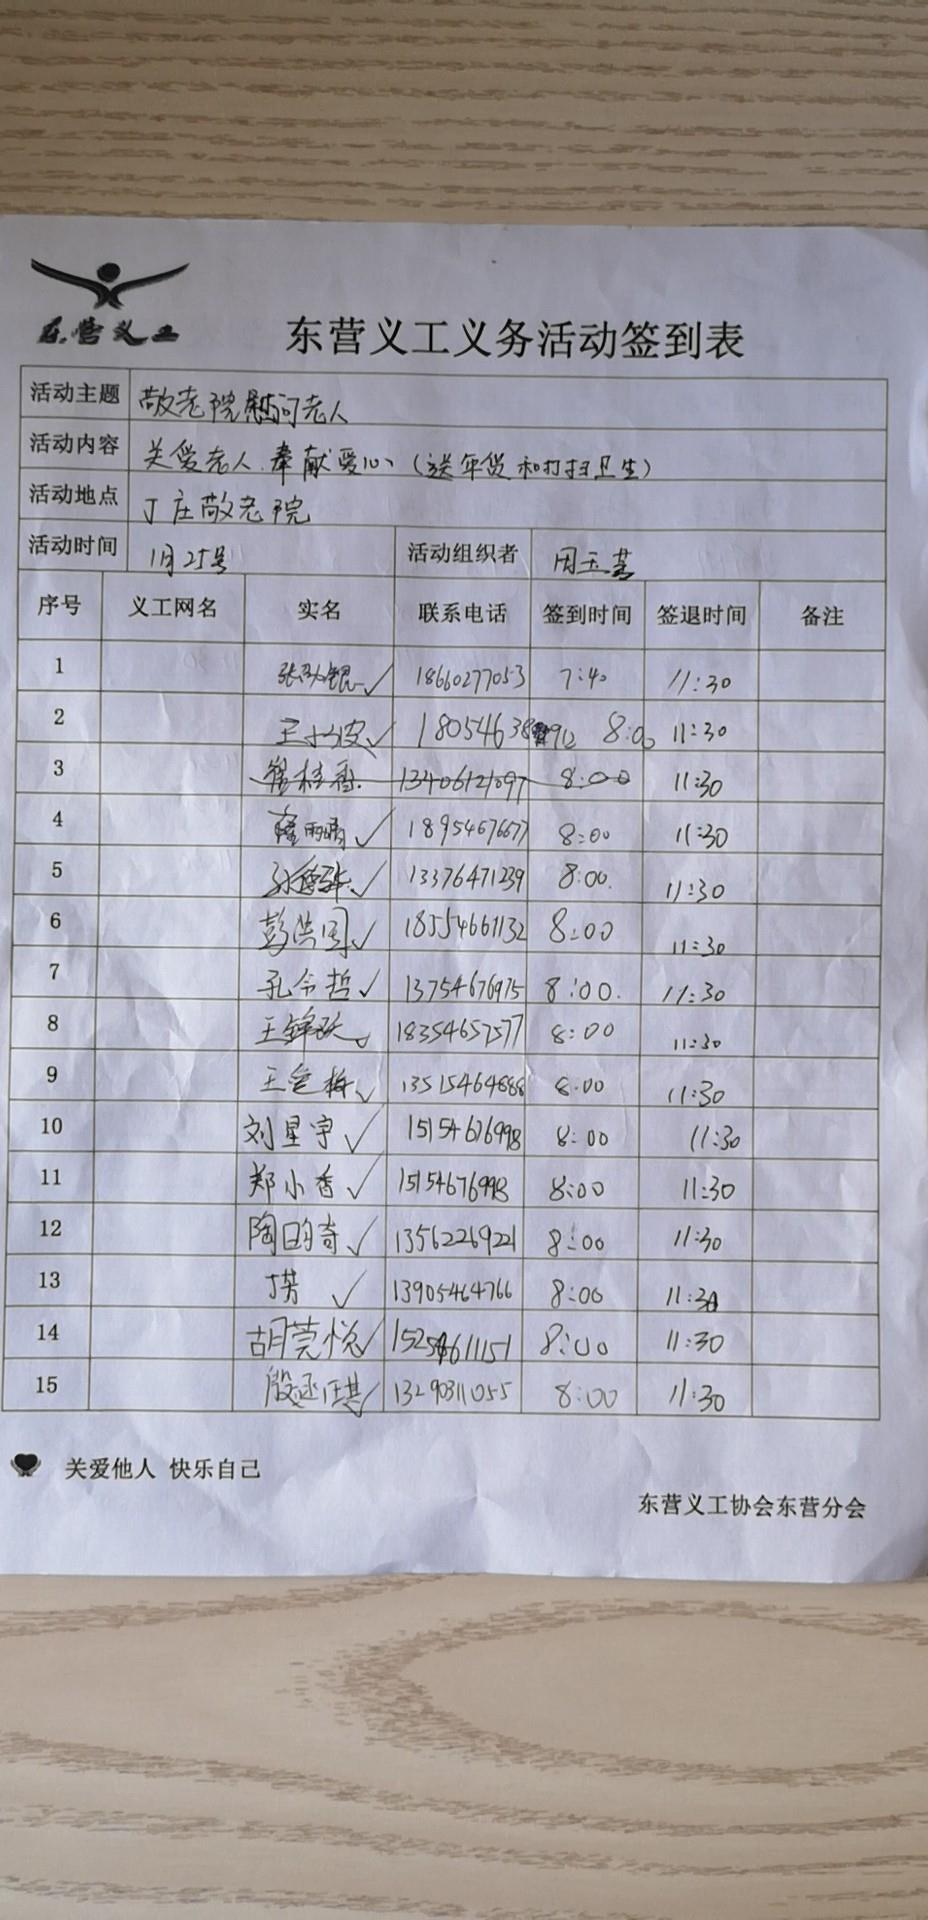 东营义工
东营义工义务活动签到表
活动主题 敬老院慰问老人
活动内容 关爱老人.奉献爱心(送年货和打扫卫生)
活动地点 丁庄敬老院
活动时间 1月25号 活动组织者 周玉
序号 义工网名 实名 联系电话 签到时间 签退时间 备注
1 张 18660277053 7:40 11:30
2 王 18054638 912 8:00 11:30
3 桂香 13406121097 8:00 11:30
4 18954676677 8:00 11:30
5 孙 13376471239 8:00. 11:30
6 彭洪国 18554661132 8:00 11:30
7 孔令哲 13754676975 8:00. 11:30
8 王 18354657577 8:00 11:30
9 王 梅 13515464888 8:00 11:30
10 刘星宇 15154676998 8:00 11:30
11 郑小香 15154676998 8:00 11:30
12 陶 奇 13562269221 8:00 11:30
13 丁芳 13905464766 8:00 11:30
14 胡莞悦 15254611151 8:00 11:30
15 殷 13290311055 8:00 11:30
关爱他人 快乐自己
东营义工协会东营分会